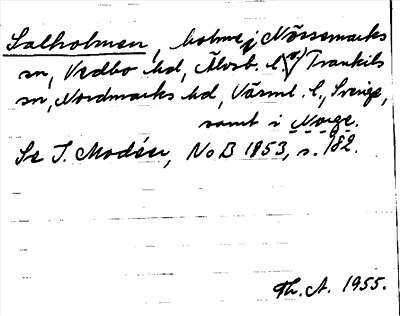 Salholmen, holme i Nössemarks
sn, Vedbo hd, Älvsb. l. o. Trankils
sn, Nordmarks hd, Värml. l., Sverige,
samt i Norge.
Se I. Modéer, NoB 1953, s. 182.
Th. A. 1955.